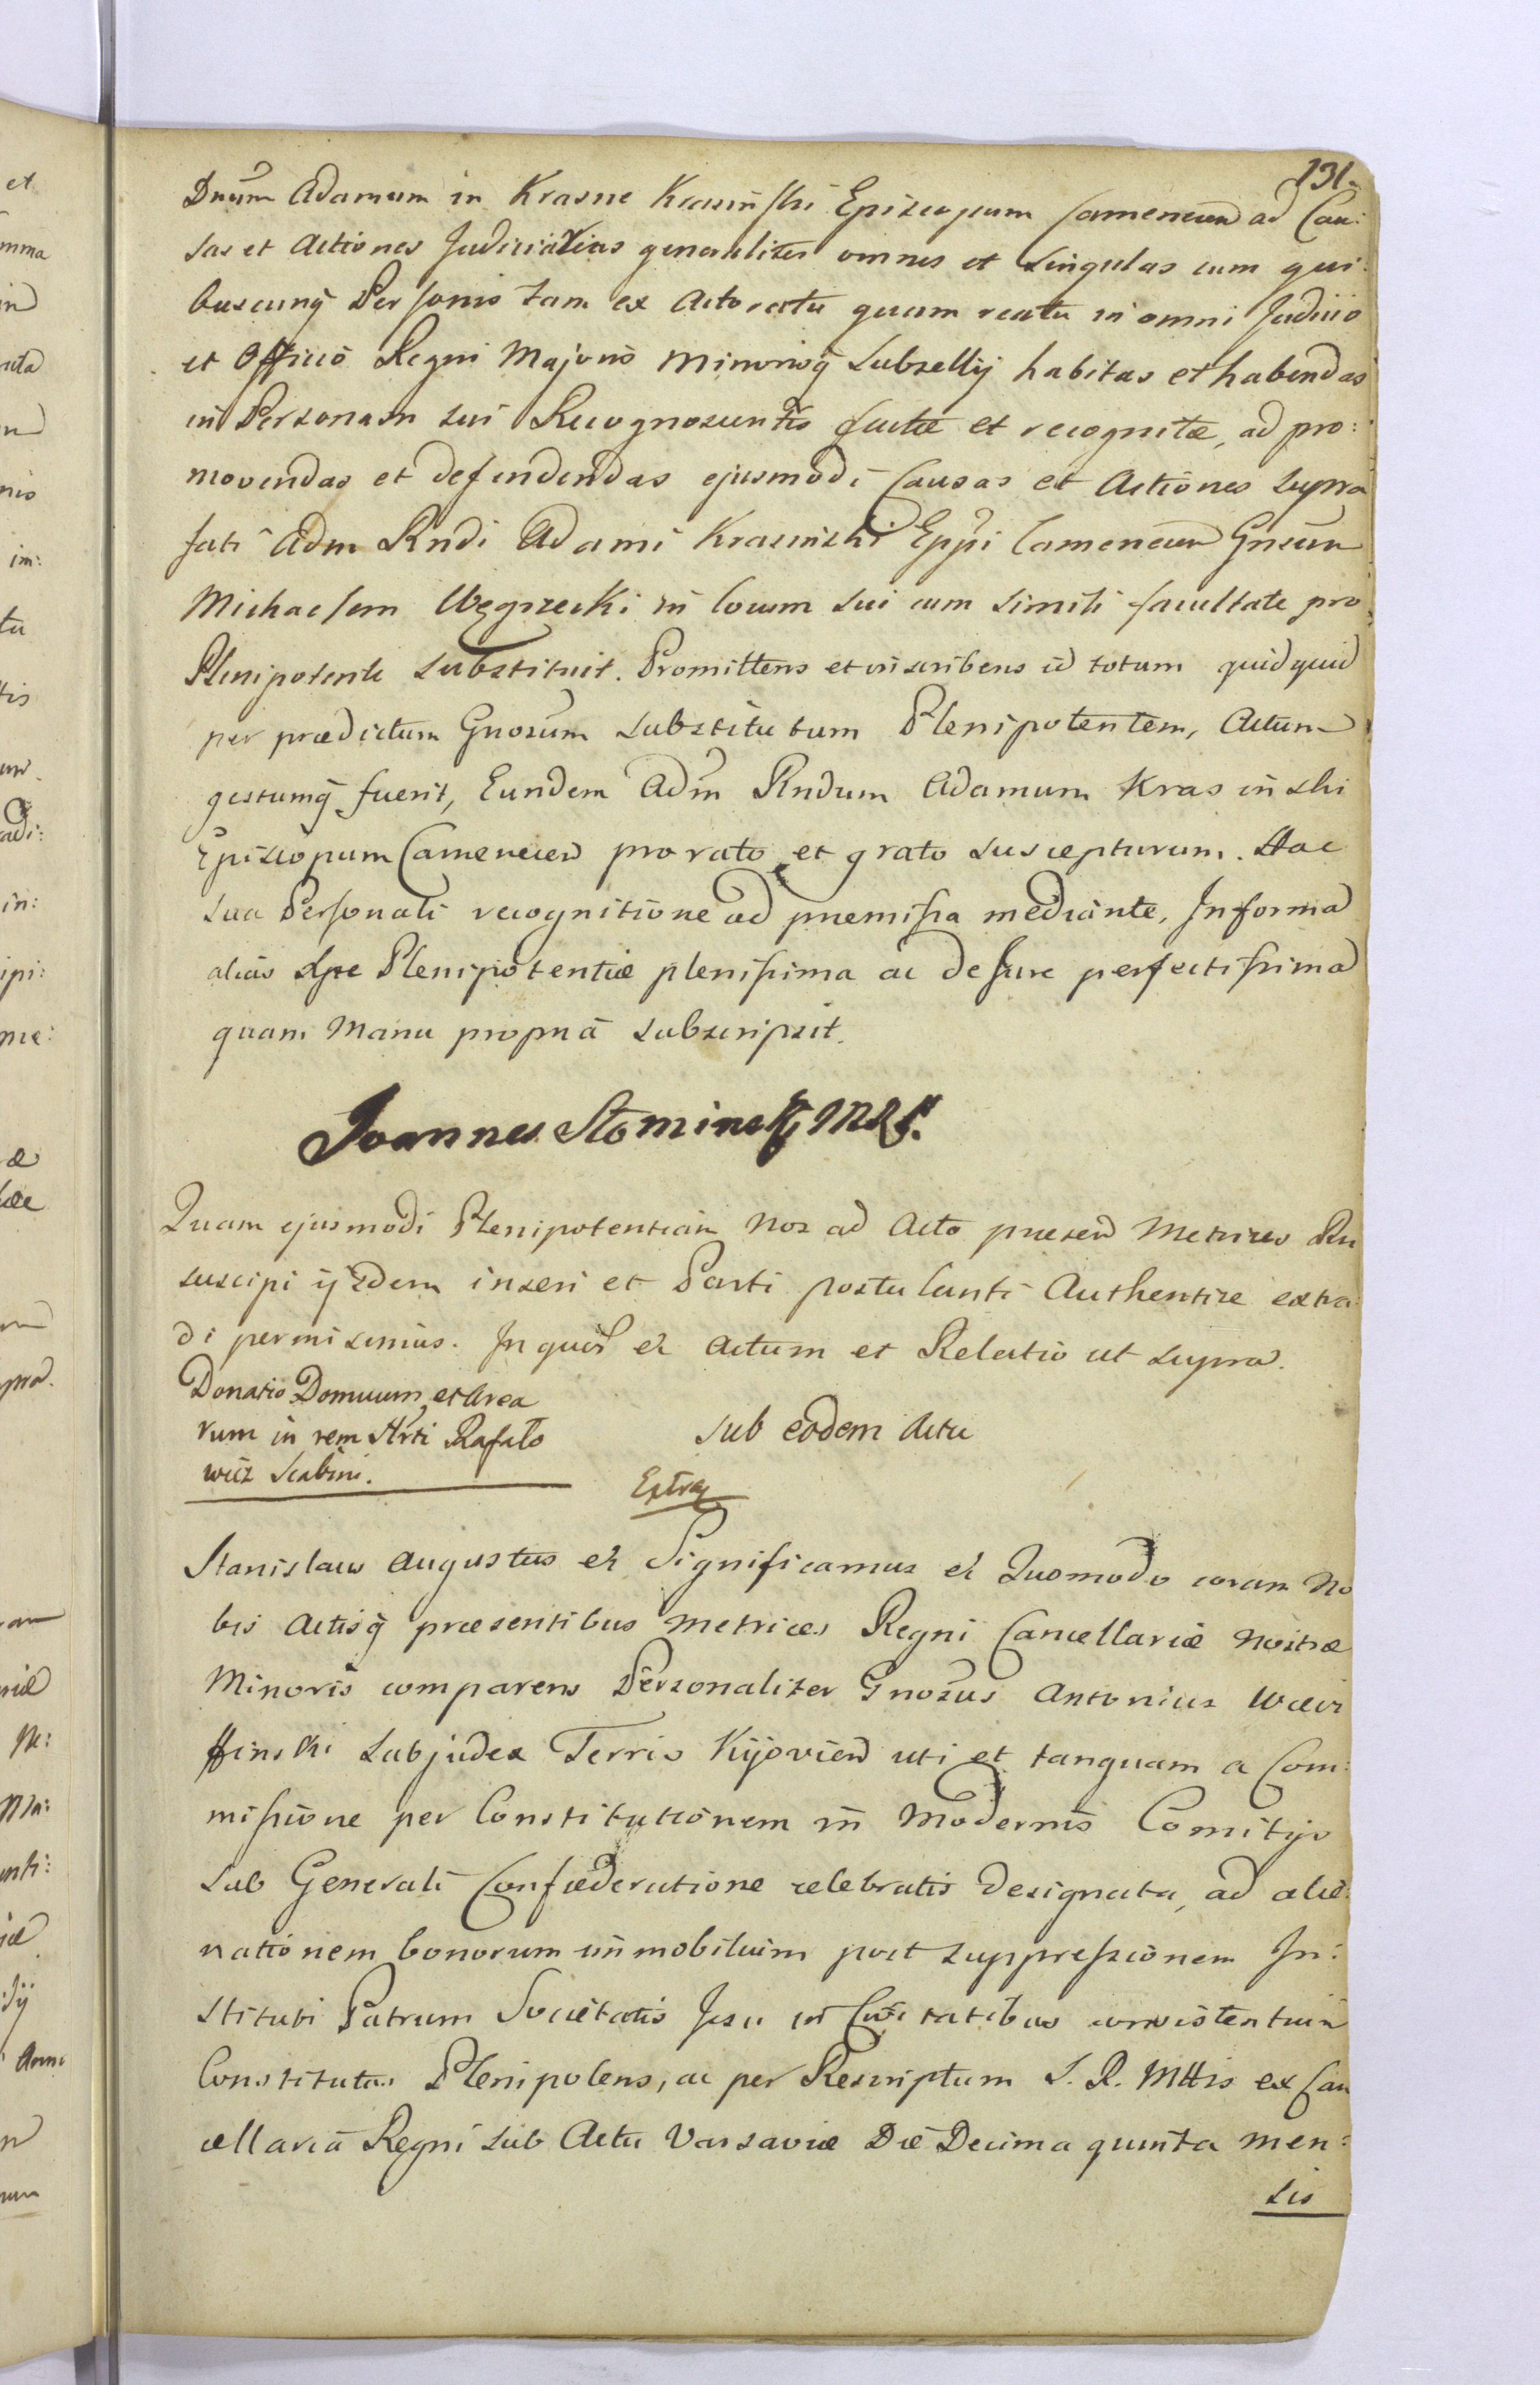 131.
Dnum Adamum in Krasne Krasinski Episcopum Camenecen ad Cau:
sas et Actiones Judiciarias generaliter omnes et singulas cum qui:
buscunq Personis tam ex Actoratu quam reatu in omni Judicio
et Officio Regni Majoris Minorisq Subsellij habitas et habendas
in Personam sui Recognoscentis factæ et recognitæ, ad pro:
movendas et defendendas ejusmodi Causas et Actiones supra
fati Adm Rndi Adami Krasinski Eppi Camenecen Gnsum
Michaelem Węgrzecki in locum sui cum simili facultate pro
Plenipotente substituit. Promittens et inscribens id totum quidquid
per prædictum Gnosum substitutum Plenipotentem, Actum
gestumq fuerit, Eundem Adm Rndum Adamum Krasinski
Episcopum Camenecen pro rato et grato suscepturum. Hac
sua Personali recognitione ad præmissa mediante, In forma
alias Spe Plenipotentiæ plenissima ac de Jure perfectissima
quam Manu propriâ subscripsit.
Joannes Słominski, mpp.
Quam ejusmodi Plenipotentiam Nos ad Acta præsen Metrices Rni
suscipi ijsdem inseri et Parti postulanti Authentice extra:
di permisimus. In quor et Actum et Relatio ut supra.
Donatio Domuum et Area
rum in rem Hrti Rafało
wicz Scabini.
Sub eodem Actu
Extra
Stanislaus Augustus et Significamus et Quomodo coram No
bis Actisq præsentibus Metrices Regni Cancellariæ Nostræ
Minoris comparens Personaliter Gnosus Antonius
Subjudex Terris Kijovien uti et tanquam a Com:
missione per Constitutionem in modernis Comitijs
sub Generali Confæderatione celebratis designata, ad alie:
nationem bonorum immobilium post suppressionem In:
stituti Patrum Societatis Jesu in Civitatibus consistentium
Constitutus Plenipotens, ac per Rescriptum S. R. Mttis ex Can
cellariâ Regni sub Actu Varsaviæ Die Decima quinta men:
sis